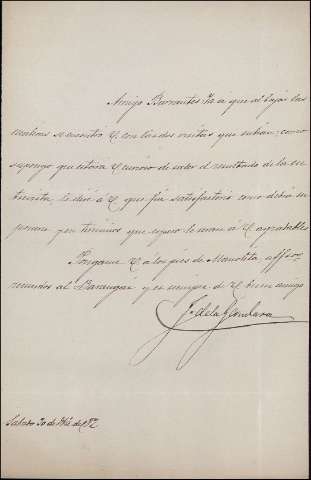 Amigo Barrantes: Ya que al bajar las
escaleras se encontró V. con las dos visitas que subían: como
supongo que estará V. curioso de saber el resultado de la en-
trevista, le diré a V. que fué satisfactorio como debía su-
ponerse y en términos que espero le sean a V. agradables
Póngame V. a los pies de Manolita, affec-
recuerdos al y es siempre de V. buen amigo
J. de la Gándara
Sabado 30 de